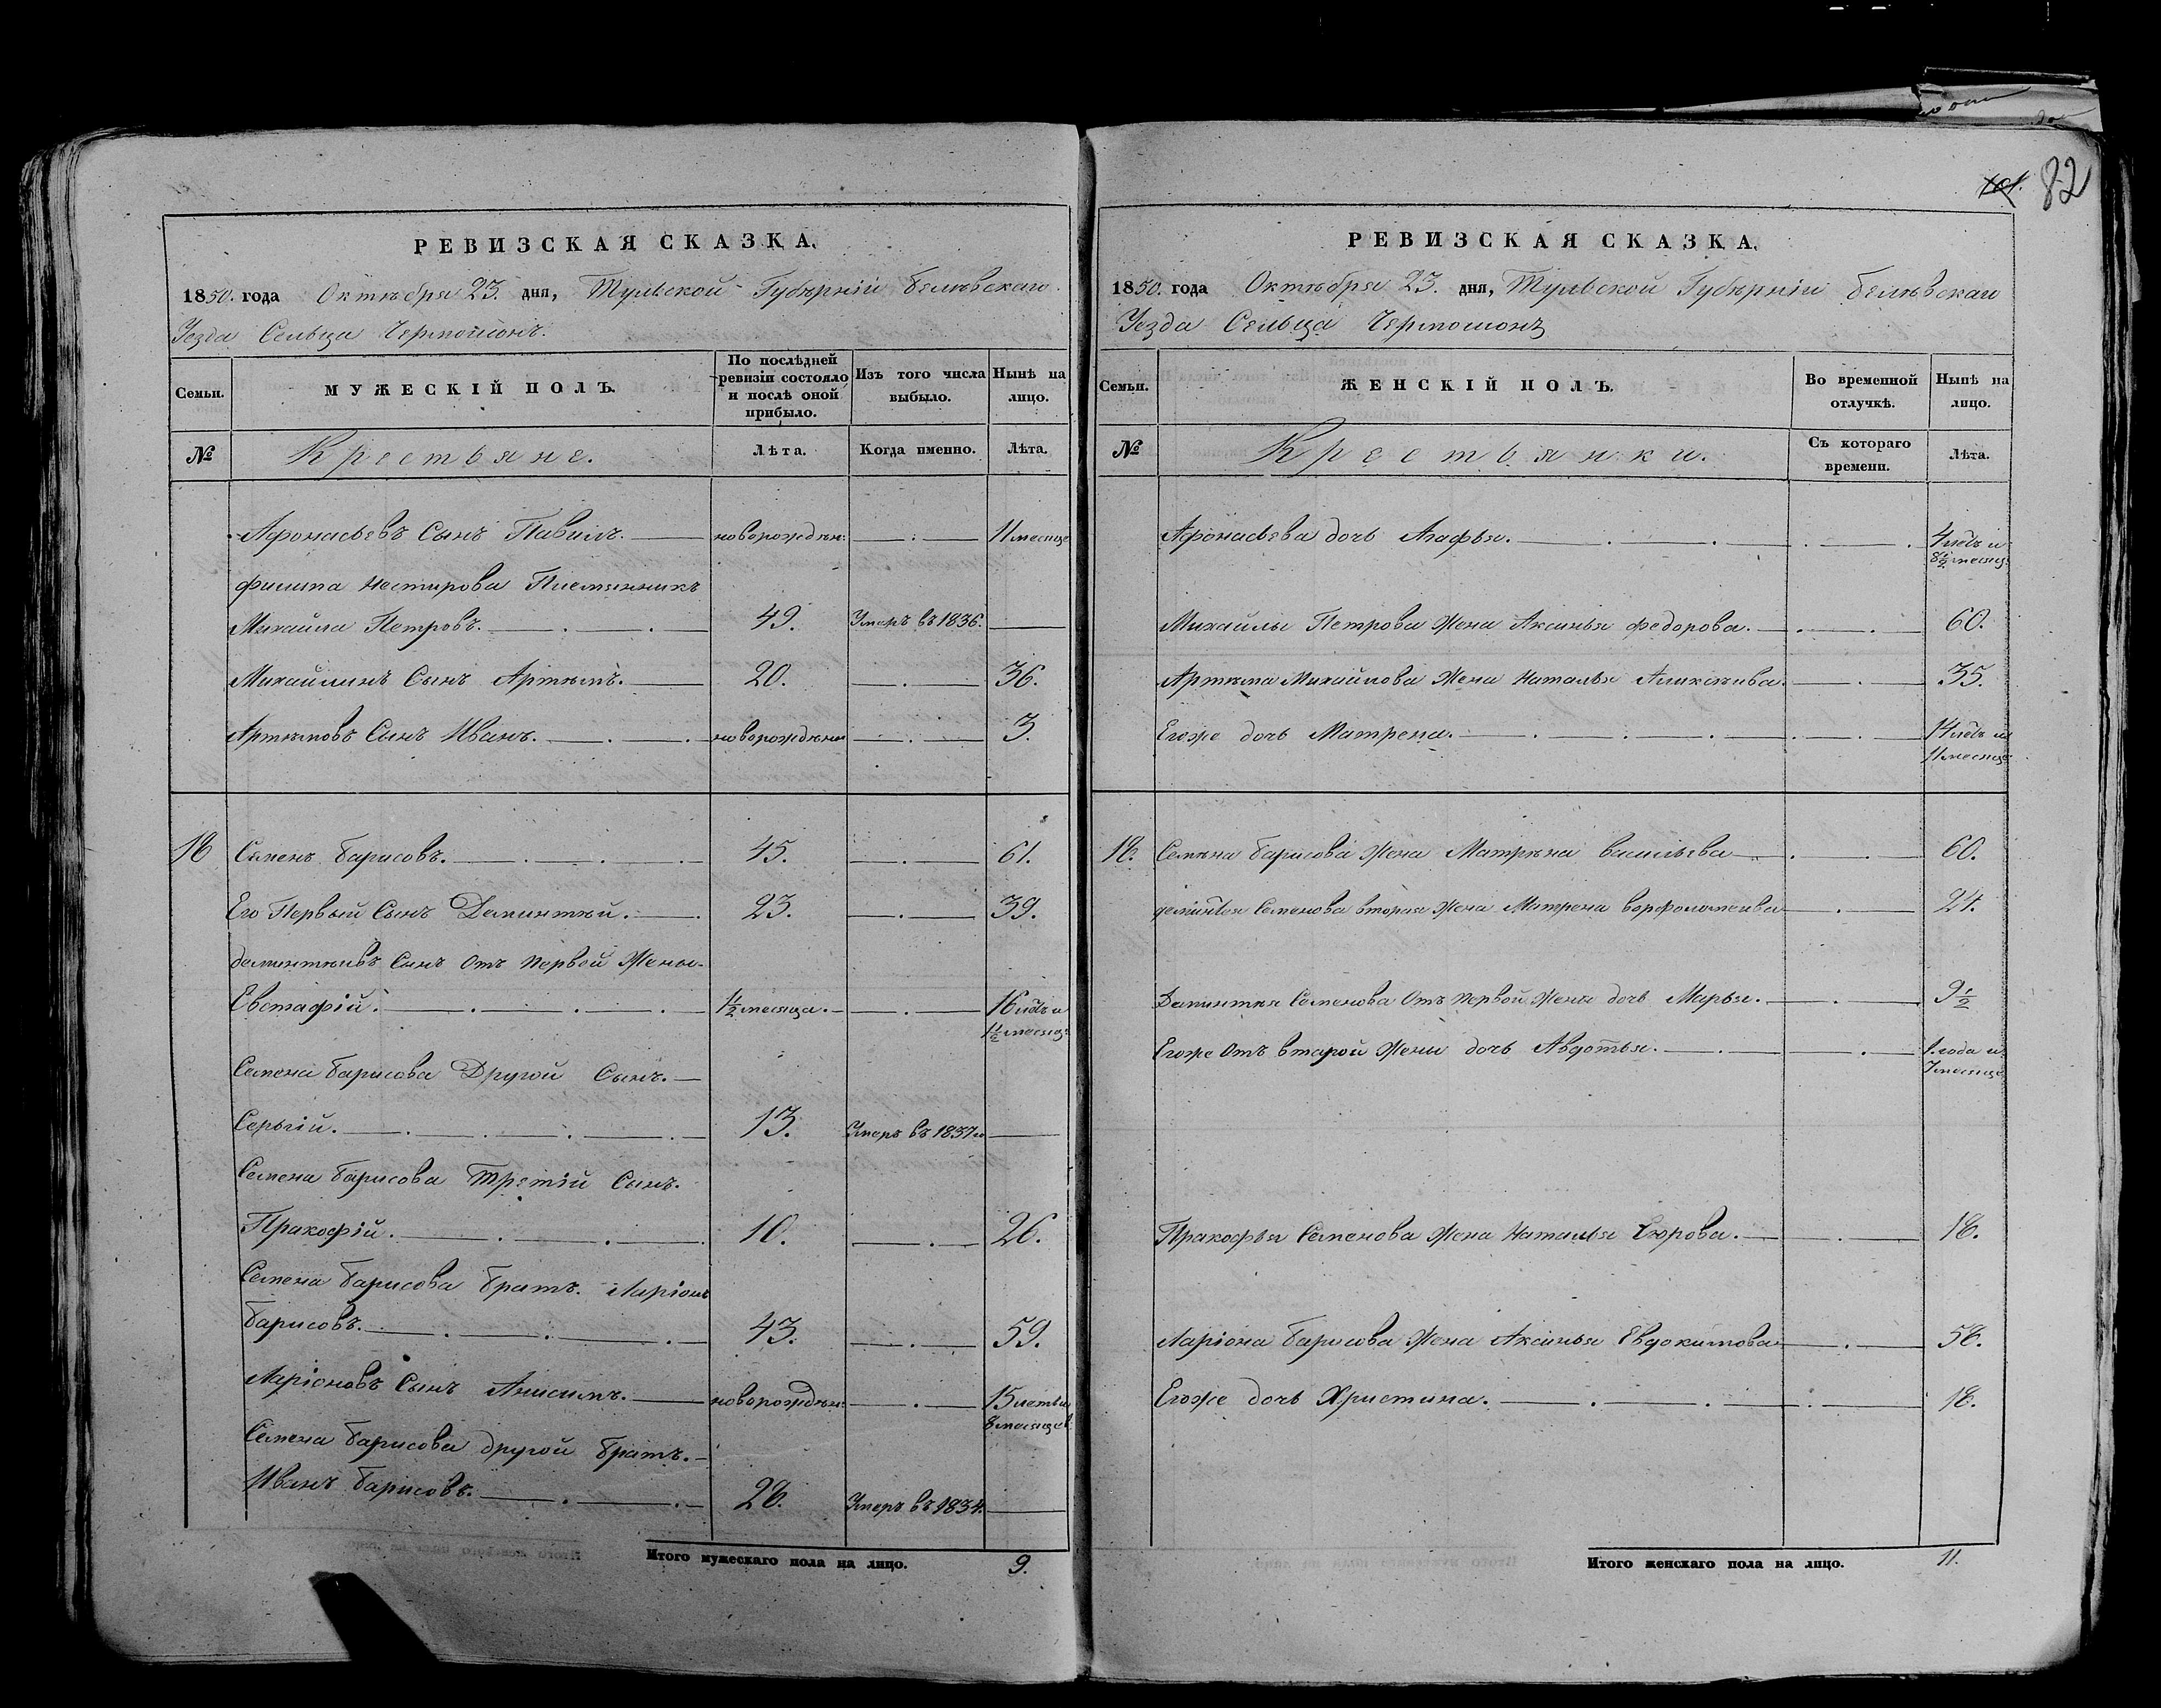 82
РЕВИЗСКАЯ СКАЗКА.
1850. года Октября 23. дня, Тульской Губѣрніи Бѣлѣвскаго
Уезда Сельца Чермошонъ.
Семьи.
МУЖЕСКІЙ ПОЛЪ.
По послѣдней ревизіи состояло и послѣ оной прибыло.
Изъ того числа выбыло.
Нынѣ на лицо.
№
Крестьяне.
Лѣта.
Когда именно.
Лѣта.
Афонасьевъ Сынъ Павилъ. новорожден: 11 месяце
Филипа Нестирова Племянникъ
Михайла Петровъ. 49. Умеръ въ 1836.
Михайлинъ Сынъ Артѣмъ. 20. 36.
Артѣмовъ Сынъ Иванъ. новорождѣн 3.
18 Семенъ Барисовъ. 45. 61.
Его Первый Сынъ Дементѣй. 23. 39.
Дементѣивъ Сынъ Отъ Первой Жены-
Евстафій. 1/2 месяца. 16 летъ и
1 1/2 месяц:
Семена Барисова Другой Сынъ.
Сергій. 13. Умеръ въ 1837 м
Семена Барисова Третій Сынъ.
Пракофій. 10. 26.
Семена Барисова Братъ. Ларіонъ
Барисовъ. 43. 59.
Ларіоновъ Сынъ Анисимъ. новорождѣн: 15 летъ и
8 месяцев
Семена Барисова другой Братъ.
Иванъ Барисовъ. 28. Умеръ въ 1834.
Итого мужескаго пола на лицо. 9.
РЕВИЗСКАЯ СКАЗКА.
1850. года Октѣбря 23. дня, Тульской Губѣрніи Бѣлѣвскаго
Уезда Сельца Чермошонъ
Семьи.
ЖЕНСКІЙ ПОЛЪ.
Во временной отлучкѣ.
Нынѣ на лицо.
№
Крестьянки.
Съ котораго времени.
Лѣта.
Афонасьева дочь Агафья. 4 летъ и
8 1/2 месяц:
Михайлы Петрова Жена Аксинья Федорова. 60.
Артѣма Михайлова Жена Наталья Аликсѣива. 35.
Егоже дочь Матрена. 14 летъ и
11 месяце
18. Семѣна Барисова Жена Матрѣна Васильева 60.
Дементья Семенова вторая Жена Матрена Ворфоломеива 24.
Дементья Семенова Отъ Первой Жены дочь Марья. 9 1/2
Егоже Отъ второй Жены дочь Авдотья. 1. года и
7 месяце
Пракофья Семенова Жена Наталья Егорова. 18.
Ларіона Барисова Жена Аксинья Евдокимова 58.
Егоже дочь Христина. 18.
Итого женскаго пола на лицо. 11.